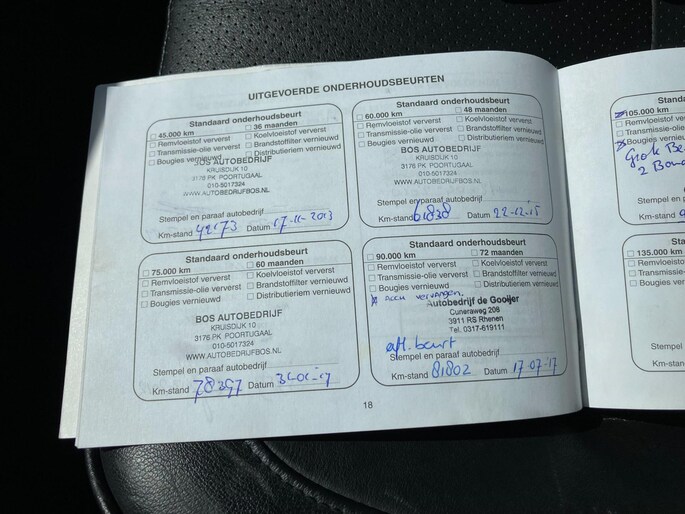 UITGEVOERDE ONDERHOUDSBEURTEN
Standaard onderhoudsbeurt
45.000 km 36 maanden
Remvloeistof ververst Koelvloeistof ververst
Transmissie-olie ververst Brandstoffilter vernieuwd
Bougies vernieuwd Distributieriem vernieuwd
BOS AUTOBEDRIJF
KRUISDIJK 10
3176 PK POORTUGAAL
010-5017324
WWW.AUTOBEDRIJFBOS.NL
Stempel en paraaf autobedrijf
Km-stand 42173 Datum 17-10-2013
Standaard onderhoudsbeurt
60.000 km 48 maanden
Remvloeistof ververst Koelvloeistof ververst
Transmissie-olie ververst Brandstoffilter vernieuwd
Bougies vernieuwd Distributieriem vernieuwd
BOS AUTOBEDRIJF
KRUISDIJK 10
3176 PK POORTUGAAL
010-5017324
WWW.AUTOBEDRIJFBOS.NL
Stempel en paraaf autobedrijf
Km-stand 61838 Datum 22-12-15
Standaard onderhoudsbeurt
75.000 km 60 maanden
Remvloeistof ververst Koelvloeistof ververst
Transmissie-olie ververst Brandstoffilter vernieuwd
Bougies vernieuwd Distributieriem vernieuwd
BOS AUTOBEDRIJF
KRUISDIJK 10
3176 PK POORTUGAAL
010-5017324
WWW.AUTOBEDRIJFBOS.NL
Stempel en paraaf autobedrijf
Km-stand 78397 Datum
Standaard onderhoudsbeurt
90.000 km 72 maanden
Remvloeistof ververst Koelvloeistof ververst
Transmissie-olie ververst Brandstoffilter vernieuwd
Bougies vernieuwd Distributieriem vernieuwd
Accu vervangen.
Autobedrijf de Gooijer
Cuneraweg 208
3911 RS Rhenen
Tel. 0317-619111
afl. beurt
Stempel en paraaf autobedrijf
Km-stand 81802 Datum 17-07-17
18
Sta
105.000 km
Remvloeistof ver
Transmissie-olie
Bougies vernieu
Grote Be
2 Band
Stempel en
Km-stand
Sta
135.000 km
Remvloeistof
Transmissie-o
Bougies vern
Stempel
Km-stan